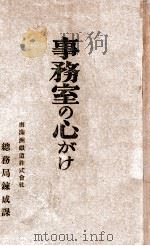 事務室の心がけ
南満洲鐵道株式會社
総務局錬成課